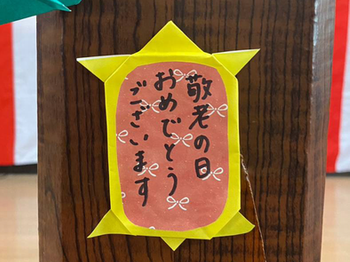 敬老の日
おめでとう
ございます